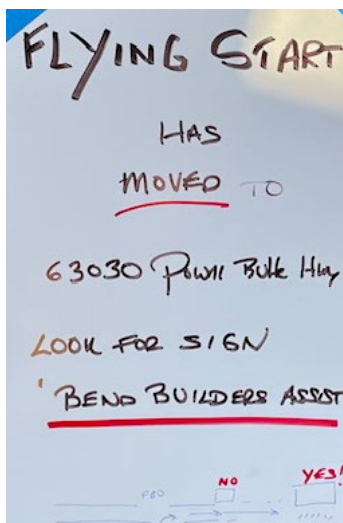 FLYING START
HAS
MOVED TO
63030 Powll Butte Hwy
LOOK FOR SIGN
' BEND BUILDERS ASSIST
NO
YES!
FBO